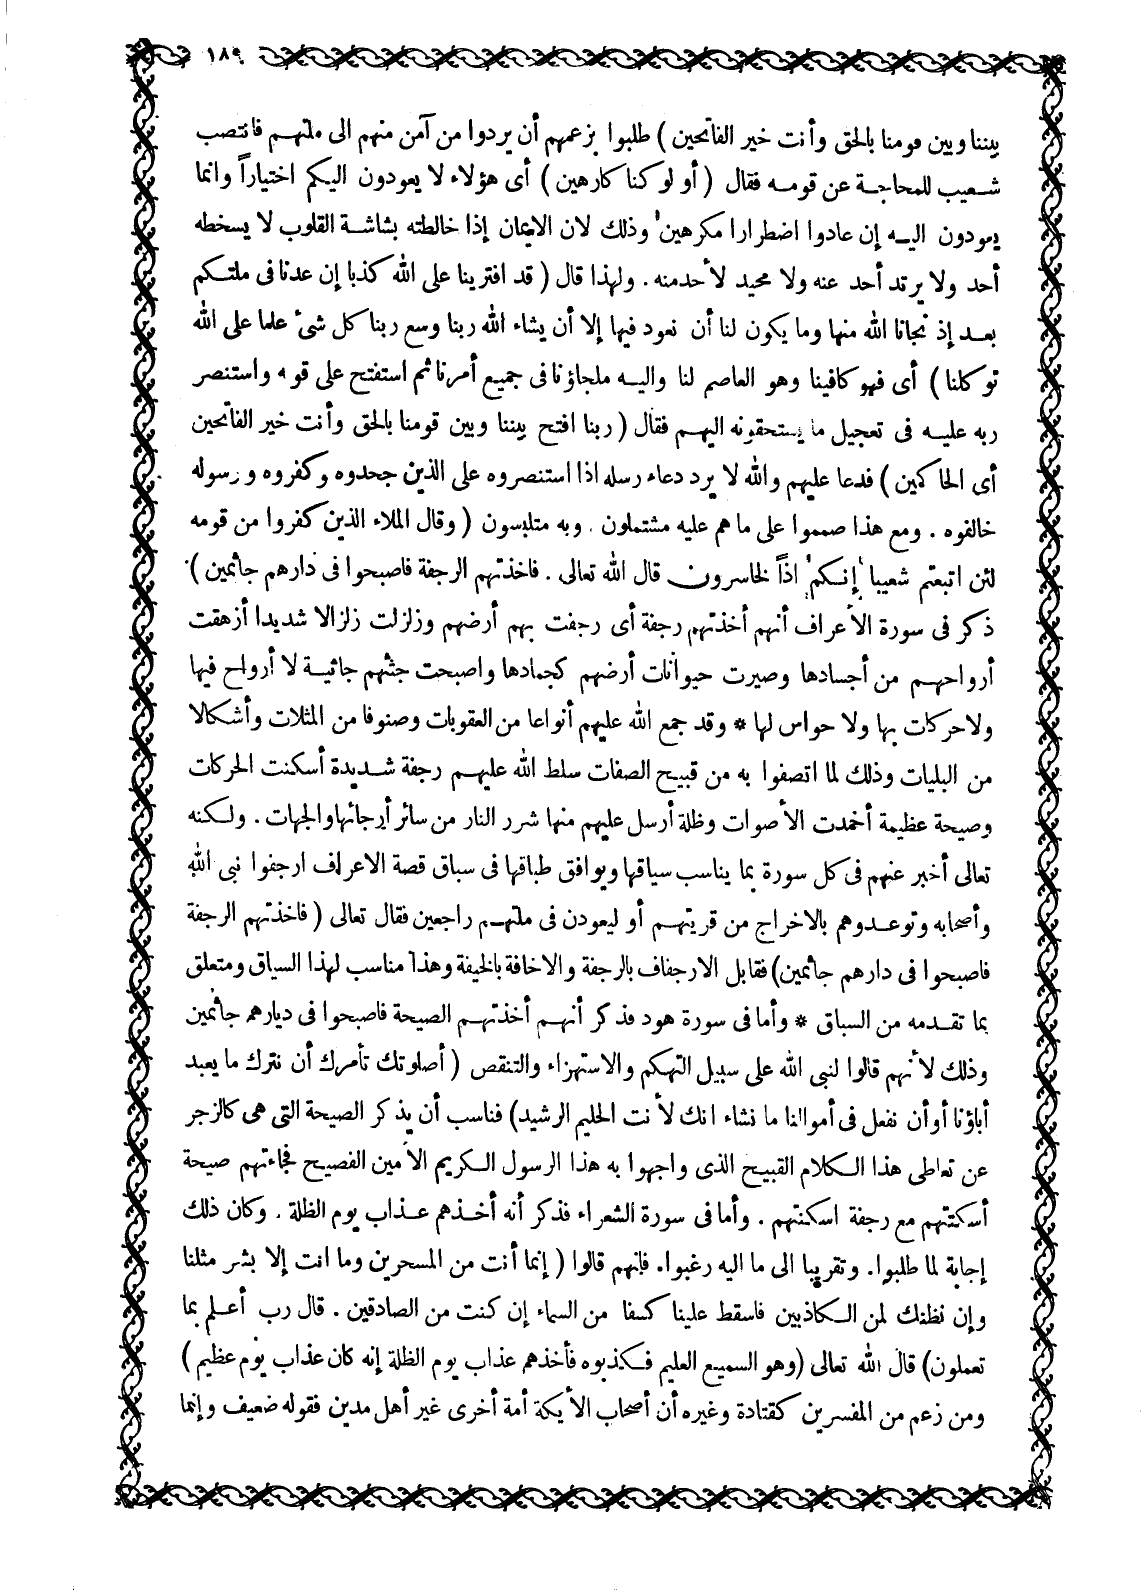 ١٨٩
بيننا وبين قومنا بالحق وأنت خير الفاتحين ) طلبوا بزعمهم أن يردوا من آمن منهم الى ملتهم فانتصب
شعيب للمحاجة عن قومه فقال ( أو لو كنا كارهين ) أى هؤلاء لا يعودون اليكم اختياراً وانما
يعودون اليه إن عادوا اضطرارا مكرهين وذلك لان الايمان إذا خالطته بشاشة القلوب لا يسخطه
أحد ولا يرتد أحد عنه ولا محيد لأحد منه . ولهذا قال ( قد افترينا على الله كذبا إن عدنا فى ملتكم
بعد إذ نجانا الله منها وما يكون لنا أن نعود فيها إلا أن يشاء الله ربنا وسع ربنا كل شئ علما على الله
توكلنا ) أى فهو كافينا وهو العاصم لنا واليه ملجاؤنا فى جميع أمرنا ثم استفتح على قومه واستنصر
ربه عليه فى تعجيل ما يستحقونه اليهم فقال ( ربنا افتح بيننا وبين قومنا بالحق وأنت خير الفاتحين
أى الحاكمين ) فدعا عليهم والله لا يرد دعاء رسله اذا استنصروه على الذين جحدوه وكفروه ورسوله
خالفوه . ومع هذا صمموا على ما هم عليه مشتملون . وبه متلبسون ( وقال الملاء الذين كفروا من قومه
لئن اتبعتم شعيبا إنكم اذاً لخاسرون قال الله تعالى . فاخذتهم الرجفة فاصبحوا فى دارهم جاثمين ) .
ذكر فى سورة الأعراف أنهم أخذتهم رجفة أى رجفت بهم أرضهم وزلزلت زلزالا شديدا أزهقت
أرواحهم من أجسادها وصيرت حيوانات أرضهم كجمادها واصبحت جثثهم جاثية لا أرواح فيها
ولا حركات بها ولا حواس لها * وقد جمع الله عليهم أنواعا من العقوبات وصنوفا من المثلات وأشكالا
من البليات وذلك لما اتصفوا به من قبيح الصفات سلط الله عليهم رجفة شديدة أسكنت الحركات
وصيحة عظيمة أخمدت الأصوات وظلة أرسل عليهم منها شرر النار من سائر أرجائها والجهات . ولكنه
تعالى أخبر عنهم فى كل سورة بما يناسب سياقها ويوافق طباقها فى سباق قصة الاعراف ارجفوا نبى الله
وأصحابه وتوعدوهم بالاخراج من قريتهم أو ليعودن فى ملتهم راجعين فقال تعالى ( فاخذتهم الرجفة
فاصبحوا فى دارهم جاثمين) فقابل الارجفاف بالرجفة والاخافة بالخيفة وهذا مناسب لهذا السياق ومتعلق
بما تقدمه من السباق * وأما فى سورة هود فذكر أنهم أخذتهم الصيحة فاصبحوا فى ديارهم جاثمين
وذلك لأنهم قالوا لنبى الله على سبيل التهكم والاستهزاء والتنقص ( أصلوتك تأمرك أن نترك ما يعبد
أباؤنا أو أن نفعل فى أموالنا ما نشاء انك لأنت الحليم الرشيد) فناسب أن يذكر الصيحة التى هى كالزجر
عن تعاطى هذا الكلام القبيح الذى واجهوا به هذا الرسول الكريم الأمين الفصيح فجاءتهم صيحة
أسكتتهم مع رجفة اسكنتهم . وأما فى سورة الشعراء فذكر أنه أخذهم عذاب يوم الظلة . وكان ذلك
إجابة لما طلبوا. وتقريبا الى ما اليه رغبوا. فإنهم قالوا ( إنما أنت من المسحرين وما انت إلا بشر مثلنا
وإن نظنك لمن الكاذبين فاسقط علينا كسفا من السماء إن كنت من الصادقين . قال رب أعلم بما
تعملون) قال الله تعالى (وهو السميع العليم فكذبوه فأخذهم عذاب يوم الظلة إنه كان عذاب يوم عظيم )
ومن زعم من المفسرين كقتادة وغيره أن أصحاب الأيكة أمة أخرى غير أهل مدين فقوله ضعيف وإنما